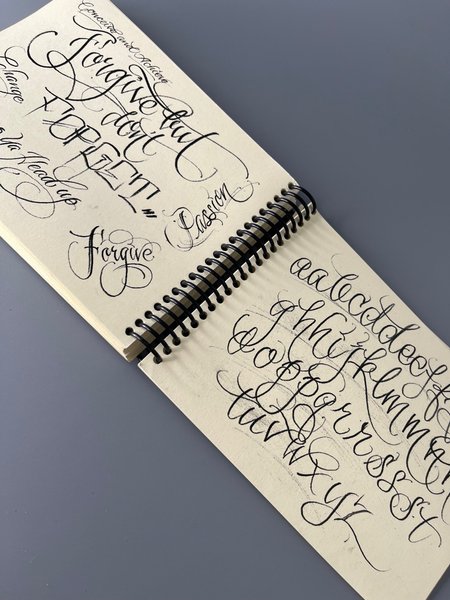 Conceive and
Forgive but
don't
FORGET"
Change
Ya Heads up
Forgive
Passion
aabcddeeff
ghhijklmmn
oopqrrssst
tuvwxyz